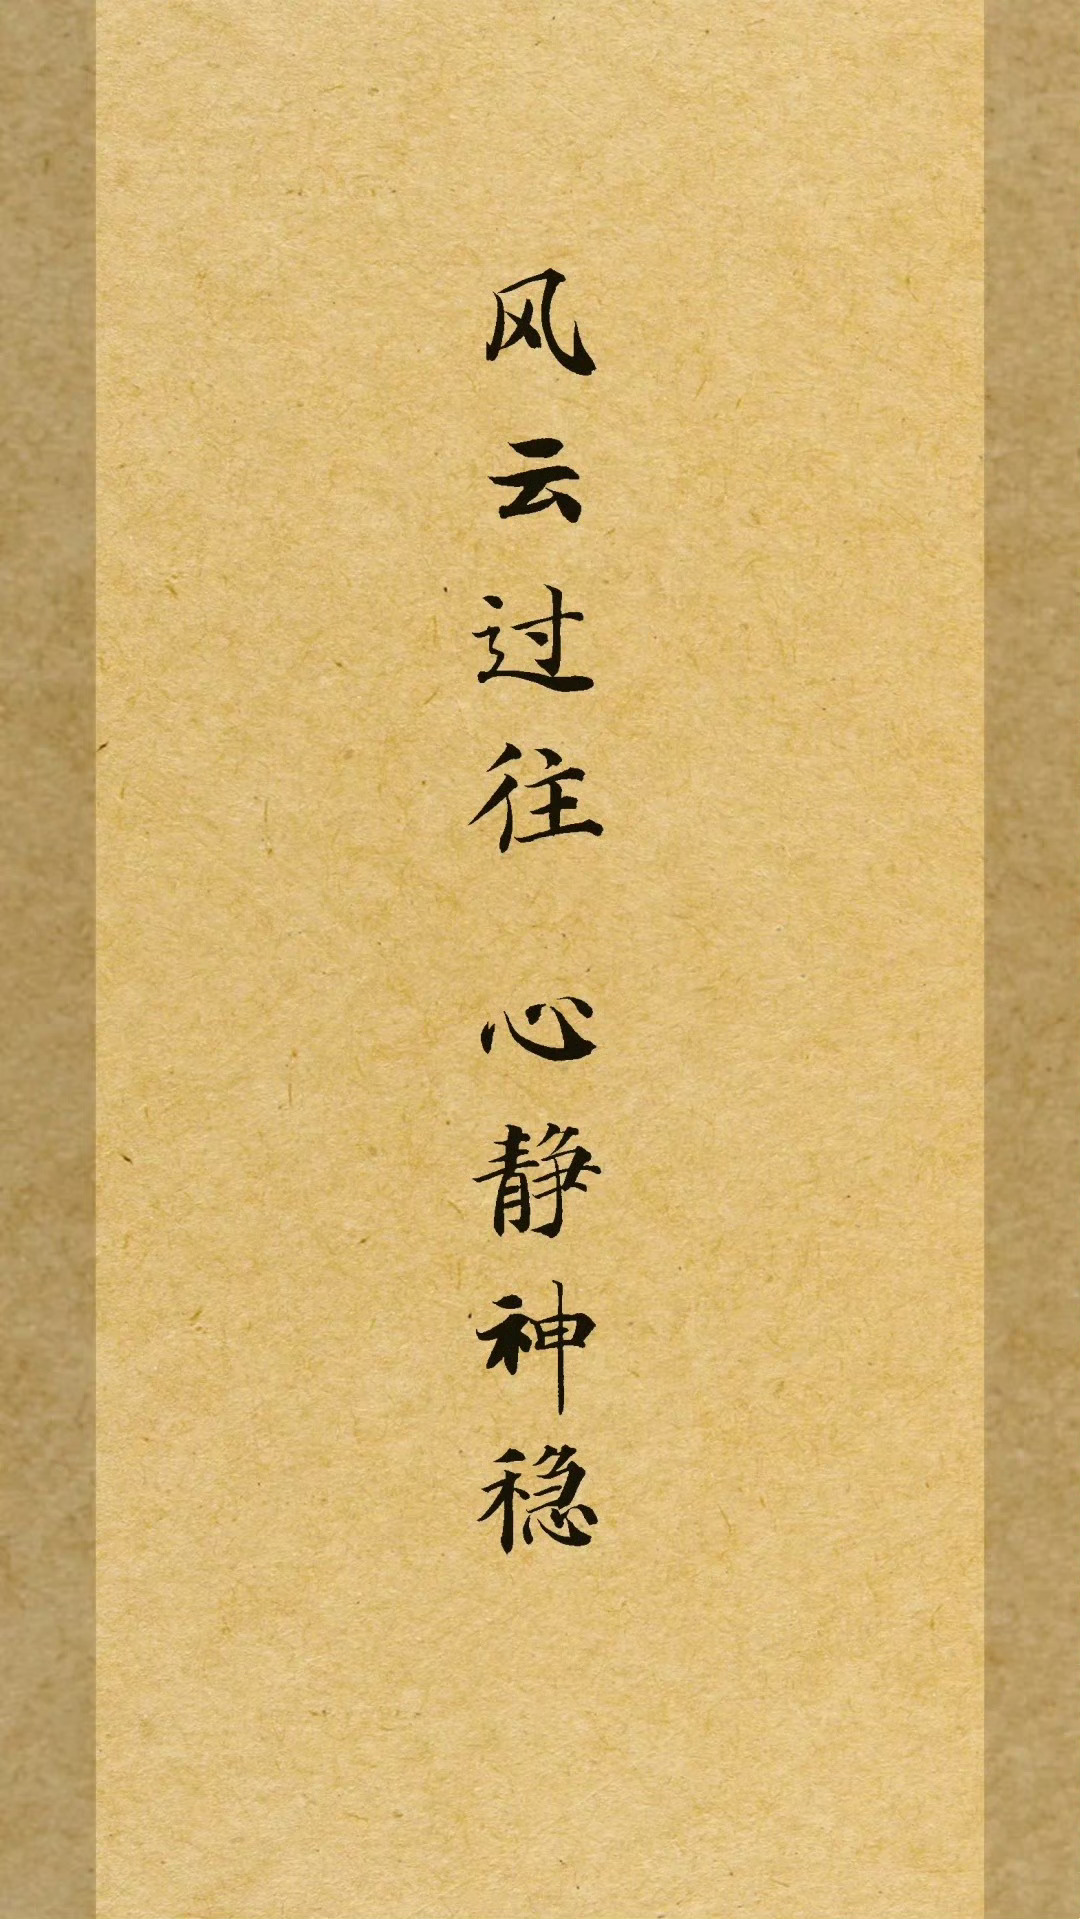 风云过往 心静神稳